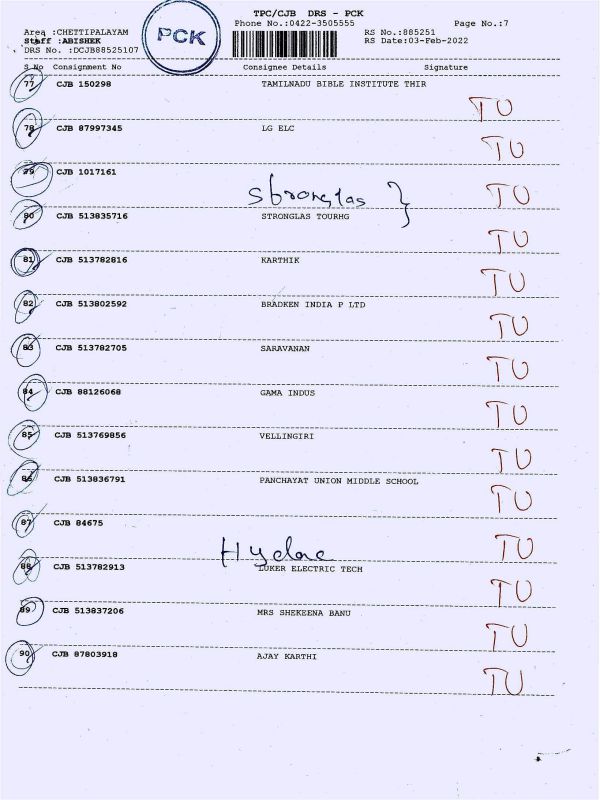 TPC/CJB DRS - PCK
Phone No.:0422-3505555 Page No.:7
Area :CHETTIPALAYAM RS No.:885251
Staff :ABISHEK PCK RS Date:03-Feb-2022
DRS No. :DCJB88525107
S.No Consignment No Consignee Details Signature
77 CJB 150298 TAMILNADU BIBLE INSTITUTE THIR
TU
78 CJB 87997345 LG ELC
TU
79 CJB 1017161
Stronglas } TU
80 CJB 513835716 STRONGLAS TOURHG
TU
81 CJB 513782816 KARTHIK
TU
82 CJB 513802592 BRADKEN INDIA P LTD
TU
83 CJB 513782705 SARAVANAN
TU
84 CJB 88126068 GAMA INDUS
TU
85 CJB 513769856 VELLINGIRI
TU
86 CJB 513836791 PANCHAYAT UNION MIDDLE SCHOOL
TU
87 CJB 84675
TU
88 CJB 513782913 LUKER ELECTRIC TECH
TU
89 CJB 513837206 MRS SHEKEENA BANU
TU
90 CJB 87803918 AJAY KARTHI
TU